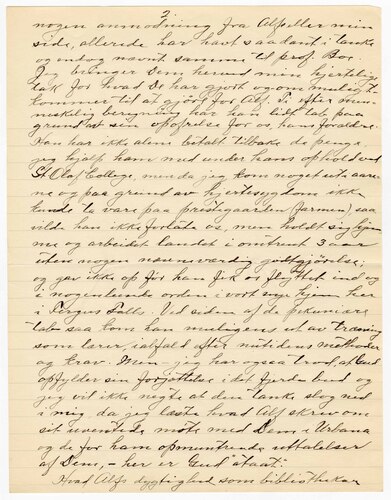 2.
nogen anmodning fra Alf eller min
side, allerede har havt saadant i tanke
og endog nævnt samme til prof. Boe.
Jeg bringer Dem herved min hjertelige
tak for hvad De har gjort og om muligt
kommer til at gjøre for Alf. Ti efter men-
neskelig beregning har han lidt tab paa
grund af sin opofrelse for os, hans forældre.
Han har ikke alene betalt tilbake de penge,
jeg hjalp ham med under hans ophold ved
St. Olaf College, men da jeg kom noget ut a aare-
ne og paa grund av hjertesygdom ikke
kunde ta vare paa prestegaarden (farmen), saa
vilde han ikke forlate os, men holdt sig hjem-
me og arbeidet landet i omtrent 3 aar
uden nogen nævneværdig godtgjørelse;
og gav ikke op før han fik os flyttet ind og
i nogenlunde orden i vort nye hjem her
i Fergus Falls. Ved siden af de pekuniære
tab saa kom han muligens ut av træning
som lærer, ialfald efter nutidens methoder
og krav. Men jeg har ogsaa trod, at Gud
opfylder sin forjættelse i det fjerde bud og
jeg vil ikke negte at den tanke slog ned
i mig, da jeg læste hvad Alf skrev om
sit uventede møte med Dem i Urbana
og de for ham opmuntrende uttalelser
af Dem, – her er Gud "staat".
Hvad Alfs dygtighed som bibliothekar